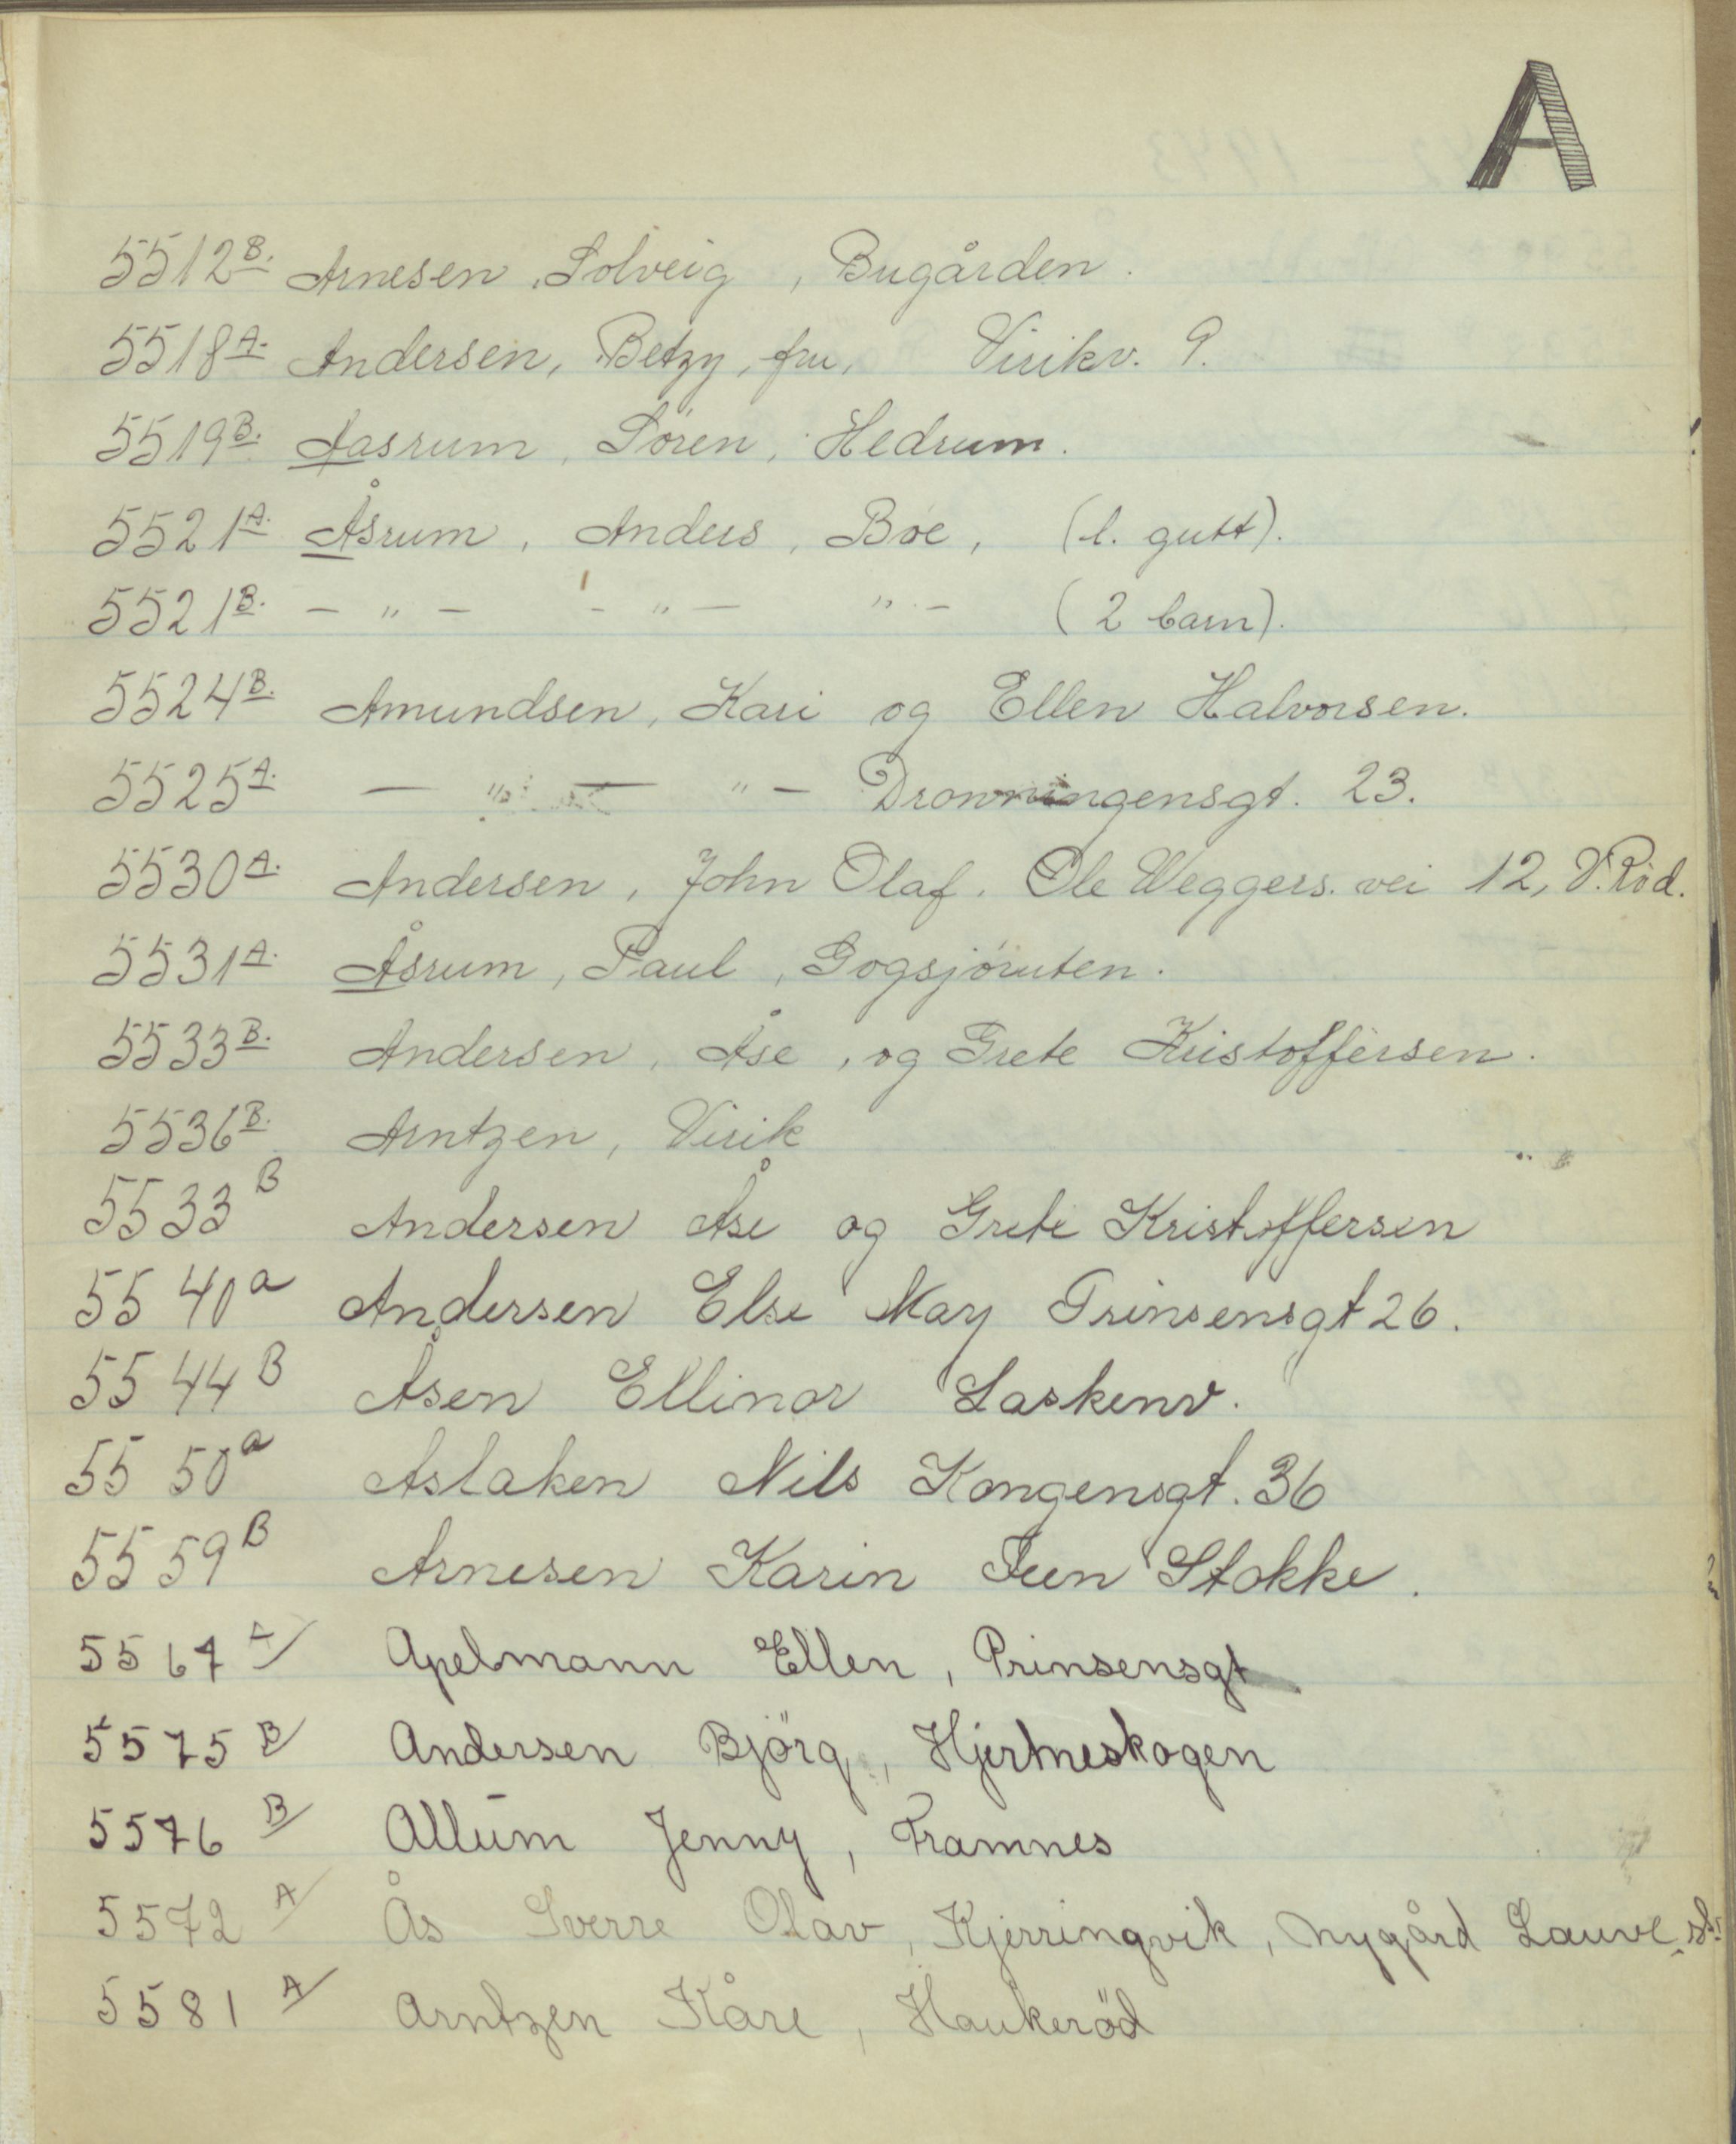 A
5512B. Arnesen, Solveig, Bugården.
5518A. Andersen, Betzy, fru, Virikv. 9.
5519B. Aasrum, Sören, Hedrum.
5521A. Åsrum, Anders, Böe, (l. gutt).
5521B. - " - - " - " - (2 barn).
5524B. Amundsen, Kari og Ellen Halvorsen.
5525A. - " - " - Dronningensgt. 23.
5530A. Andersen, John Olaf. Ole Weggers. vei 12, V. Röd.
5531A. Åsrum, Paul, Gogsjöruten.
5533B. Andersen, Åse, og Grete Kristoffersen.
5536B. Arntzen, Virik
5533B Andersen Åse og Grete Kristoffersen
5540a Andersen Else May Prinsensgt 26.
5544B Åsen Ellinor Laskenv.
5550a Aslaken Nils Kongensgt. 36
5559B Arnesen Karin Feen Stokke.
5567A/ Apelmann Ellen, Prinsensgt
5575B/ Andersen Björg, Hjertneskogen
5576B/ Allum Jenny, Framnes
5572A/ Ås Sverre Olav, Kjerringvik, Nygård Lauve st.
5581A/ Arntzen Kåre, Haukeröd